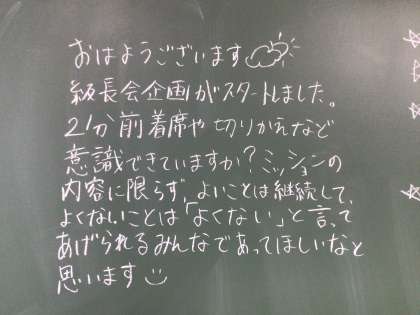 おはようございます
級長会企画がスタートしました。
2分前着席や切りかえなど
意識できていますか？ミッションの
内容に限らず、よいことは継続して、
よくないことは「よくない」と言って
あげられるみんなであってほしいなと
思います